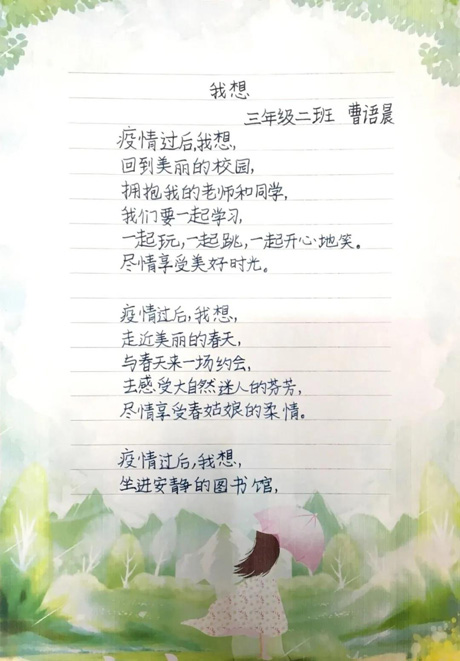 我想
三年级二班 曹语晨
疫情过后,我想,
回到美丽的校园,
拥抱我的老师和同学,
我们要一起学习,
一起玩,一起跳,一起开心地笑。
尽情享受美好时光。
疫情过后,我想,
走近美丽的春天,
与春天来一场约会,
去感受大自然迷人的芬芳,
尽情享受春姑娘的柔情。
疫情过后,我想,
坐进安静的图书馆,